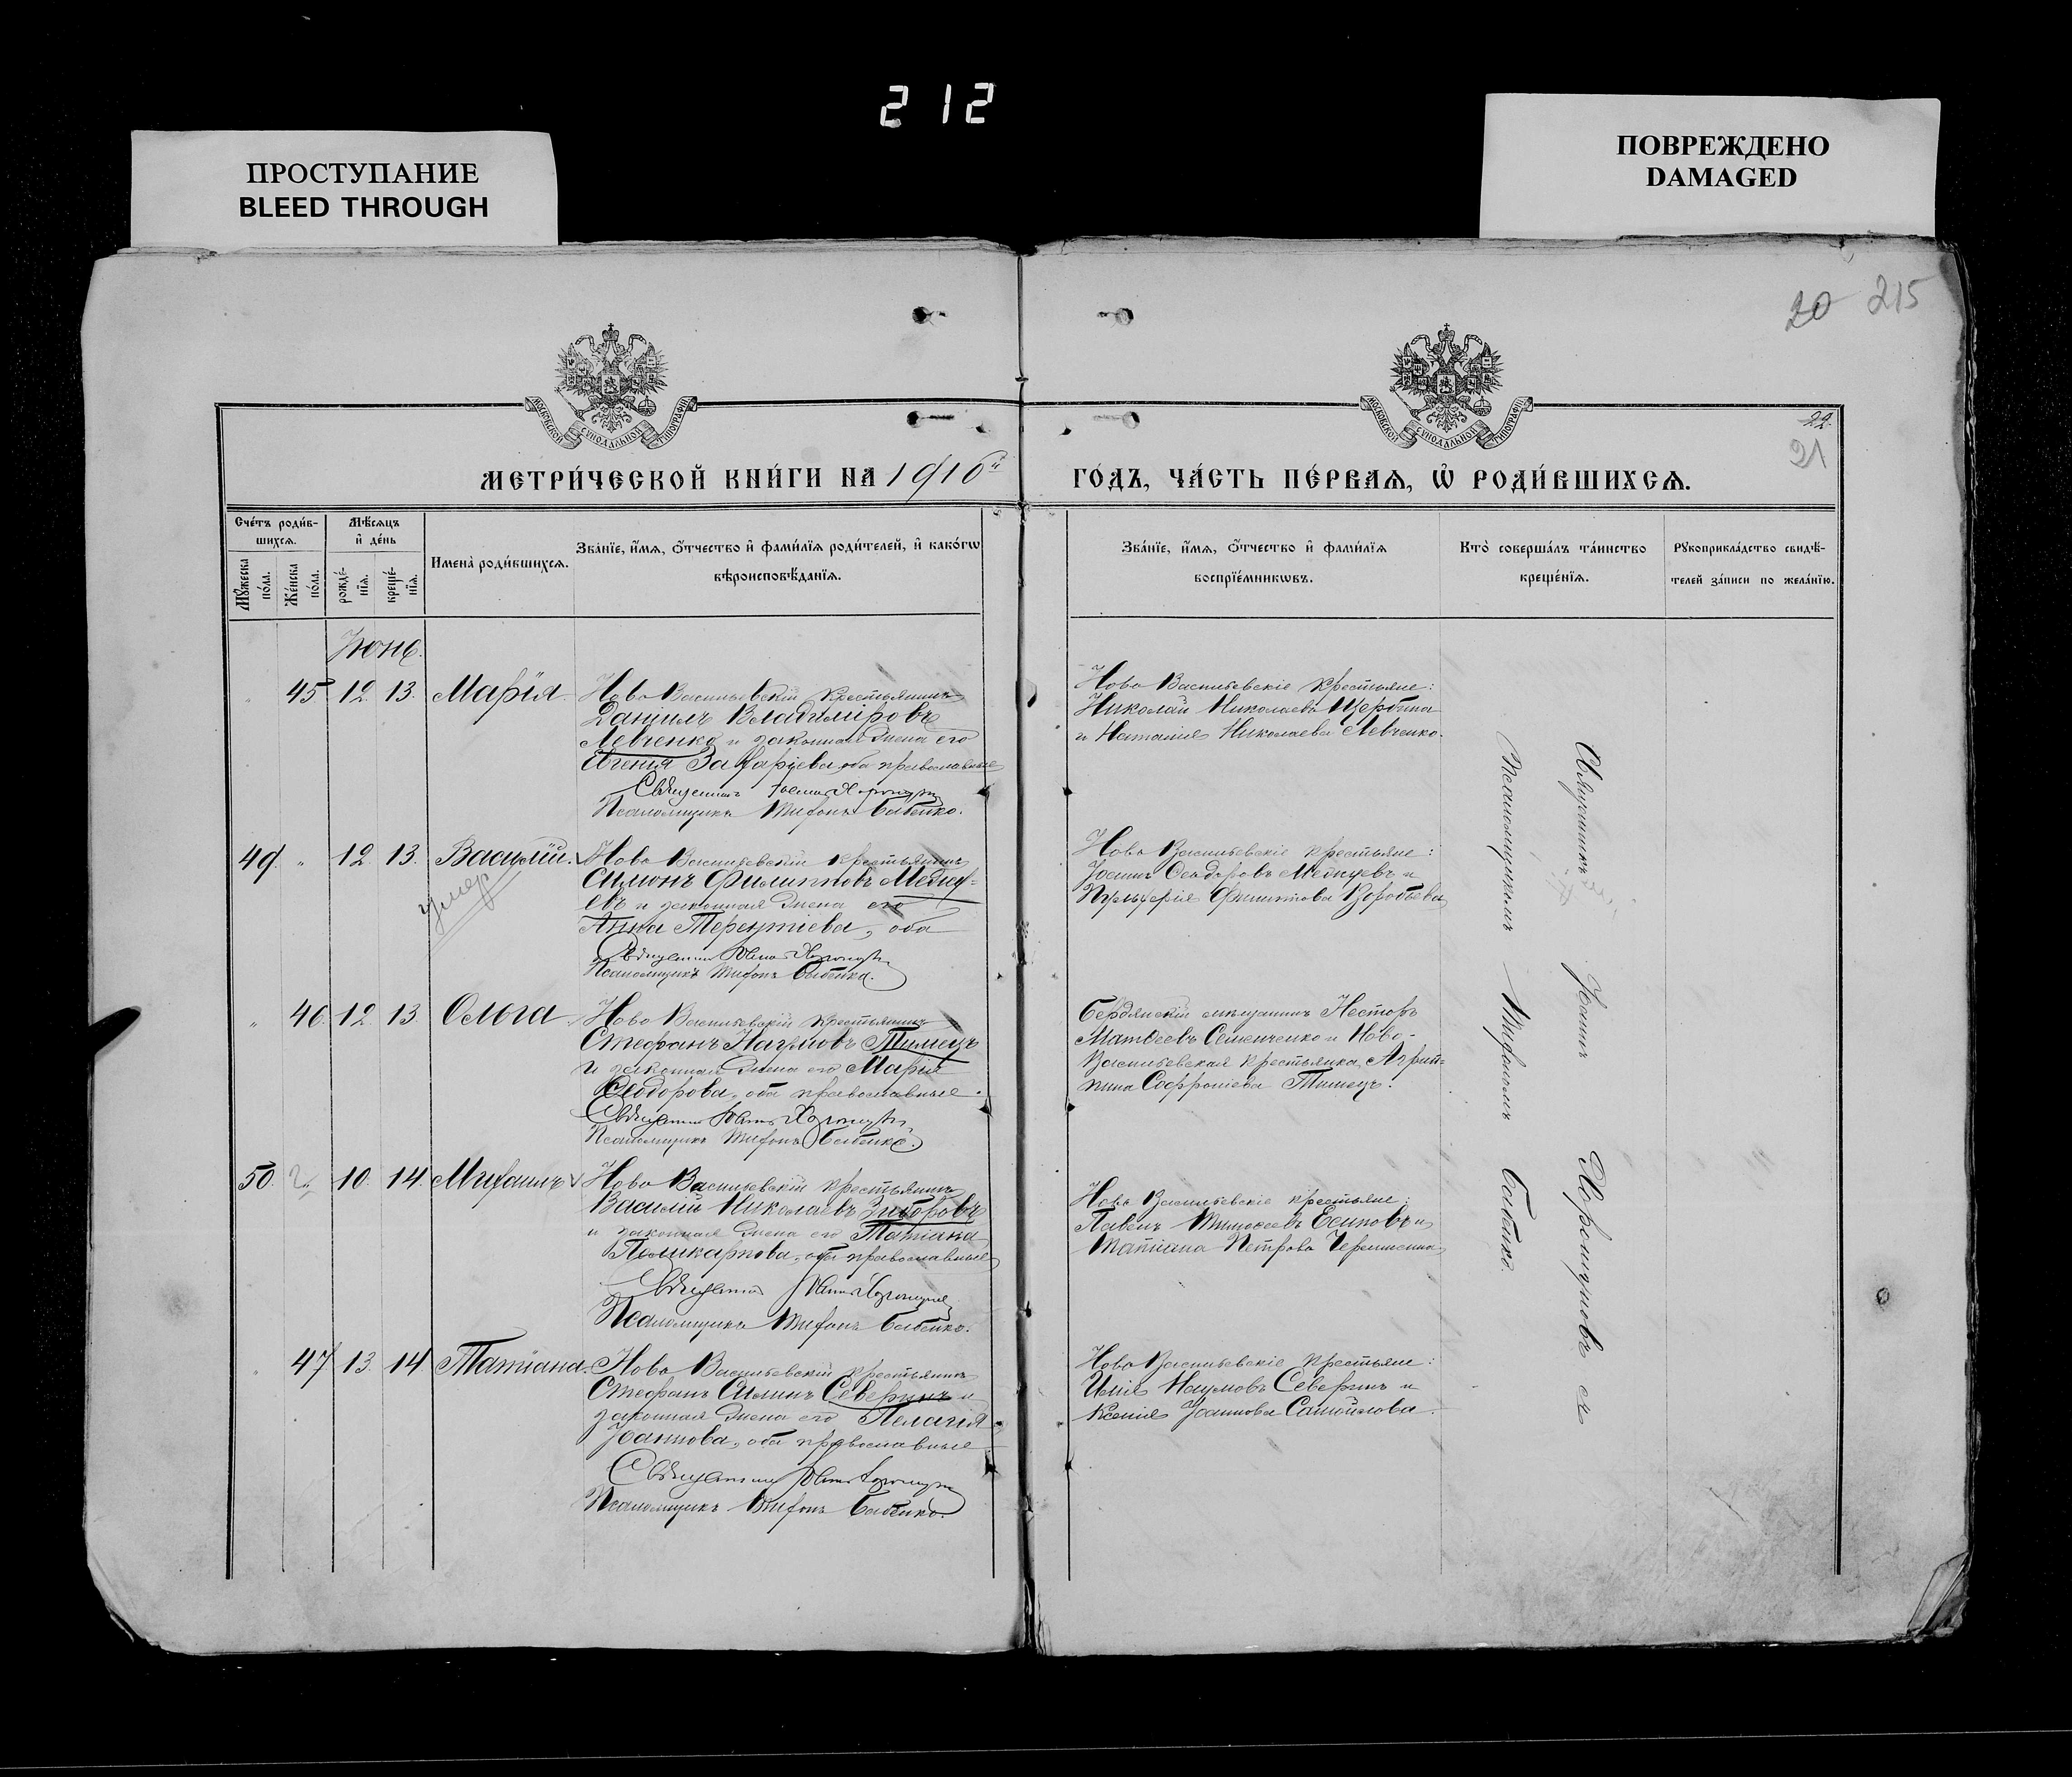 212
ПРОСТУПАНИЕ
BLEED THROUGH
ПОВРЕЖДЕНО
DAMAGED
20 215
МОСКОВСКОЙ СѴНОДАЛЬНОЙ ТИПОГРАФІИ
МОСКОВСКОЙ СѴНОДАЛЬНОЙ ТИПОГРАФІИ
22.
21
МЕТРИ́ЧЕСКОЙ КНИ́ГИ НА 1910й
ГО́ДЪ, ЧА́СТЬ ПЕ́РВАѦ, Ѽ РОДИ́ВШИХСѦ.
Сче́тъ роди́в-
шихсѧ.
Мꙋжеска по́ла.
Же́нска по́ла.
Мѣ́сѧцъ
и҆ де́нь
рожде́-
нїѧ.
креще́-
нїѧ.
Имена̀ роди́вшихсѧ.
Зва́нїе, и҆́мѧ, ѻ҆́тчество и҆ фами́лїѧ роди́телей, и҆ како́гѡ
вѣроисповѣ́данїѧ.
Зва́нїе, и҆́мѧ, ѻ҆́тчество и҆ фами́лїѧ
воспрїе́мникѡвъ.
Кто̀ соверша́лъ та́инство
креще́нїѧ.
Рꙋкоприкла́дство свидѣ́-
телей за́писи по жела́нїю.
Іюнь.
45 12. 13. Марія
Ново Васильевскій крестьянинъ
Даніилъ Владиміровъ
Левченко и законная жена его
Евгенія Захаріева, оба православные
Священникъ Іоаннъ
Псаломщикъ Тихонъ Бабенко.
Ново Васильевскіе крестьяне:
Николай Николаевъ Щербина
и Наталія Николаева Левченко.
49. " 12. 13. Василій.
умер
Ново Васильевскій крестьянинъ
Симонъ Филипповъ
и законная жена его
Анна Терентіева, оба
Священникъ Іоаннъ
Псаломщикъ Тихонъ Бабенко.
Ново Васильевскіе крестьяне:
Іоаннъ Ѳеодоровъ и
Пульхерія Филиппова Воробьева
" 46. 12. 13. Ольга
Ново Васильевскій крестьянинъ
Стефанъ Наумовъ
и законная жена его Марія
Ѳеодорова, оба православные.
Священникъ Іоаннъ
Псаломщикъ Тихонъ Бабенко.
Бердянскій мѣщанинъ Несторъ
Матѳеевъ Семенченко и Ново-
Васильевская крестьянка Агрип-
пина Софроніева
50. 10. 14. Михаилъ
Ново Васильевскій крестьянинъ
Василій Николаевъ
и законная жена его Татіана
Поликарпова, оба православные
Священникъ Іоаннъ
Псаломщикъ Тихонъ Бабенко.
Ново Васильевскіе крестьяне:
Павелъ Тимоѳеевъ Есиповъ и
Татіана Петрова
47 13. 14 Татіана.
Ново Васильевскій крестьянинъ
Стефанъ Силинъ Северинъ и
законная жена его Пелагія
Іоаннова, оба православные
Священникъ Іоаннъ
Псаломщикъ Тихонъ Бабенко.
Ново Васильевскіе крестьяне:
Илія Наумовъ Северинъ и
Ксенія Іоаннова Самойлова.
Священникъ Іоаннъ съ
Псаломщикомъ Тихономъ Бабенко.